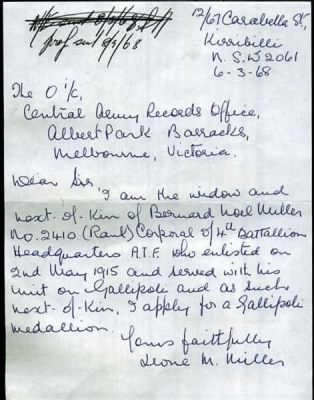 12/67 Carabella St,
prof sent 8/3/68
Kirribilli
N. S. W 2061
6 - 3 - 68
The O i/c,
Central Army Records Office,
Albert Park Barracks,
Melbourne, Victoria.
Dear Sir,
I am the widow and
next-of-Kin of Bernard Noel Miller
No. 2410 (Rank) Corporal of 4th Battallion
Headquarters A.I.F. who enlisted on
2nd May 1915 and served with his
unit on Gallipoli and as such
next-of-Kin, I apply for a Gallipoli
medallion.
Yours faithfully
Leone M. Miller